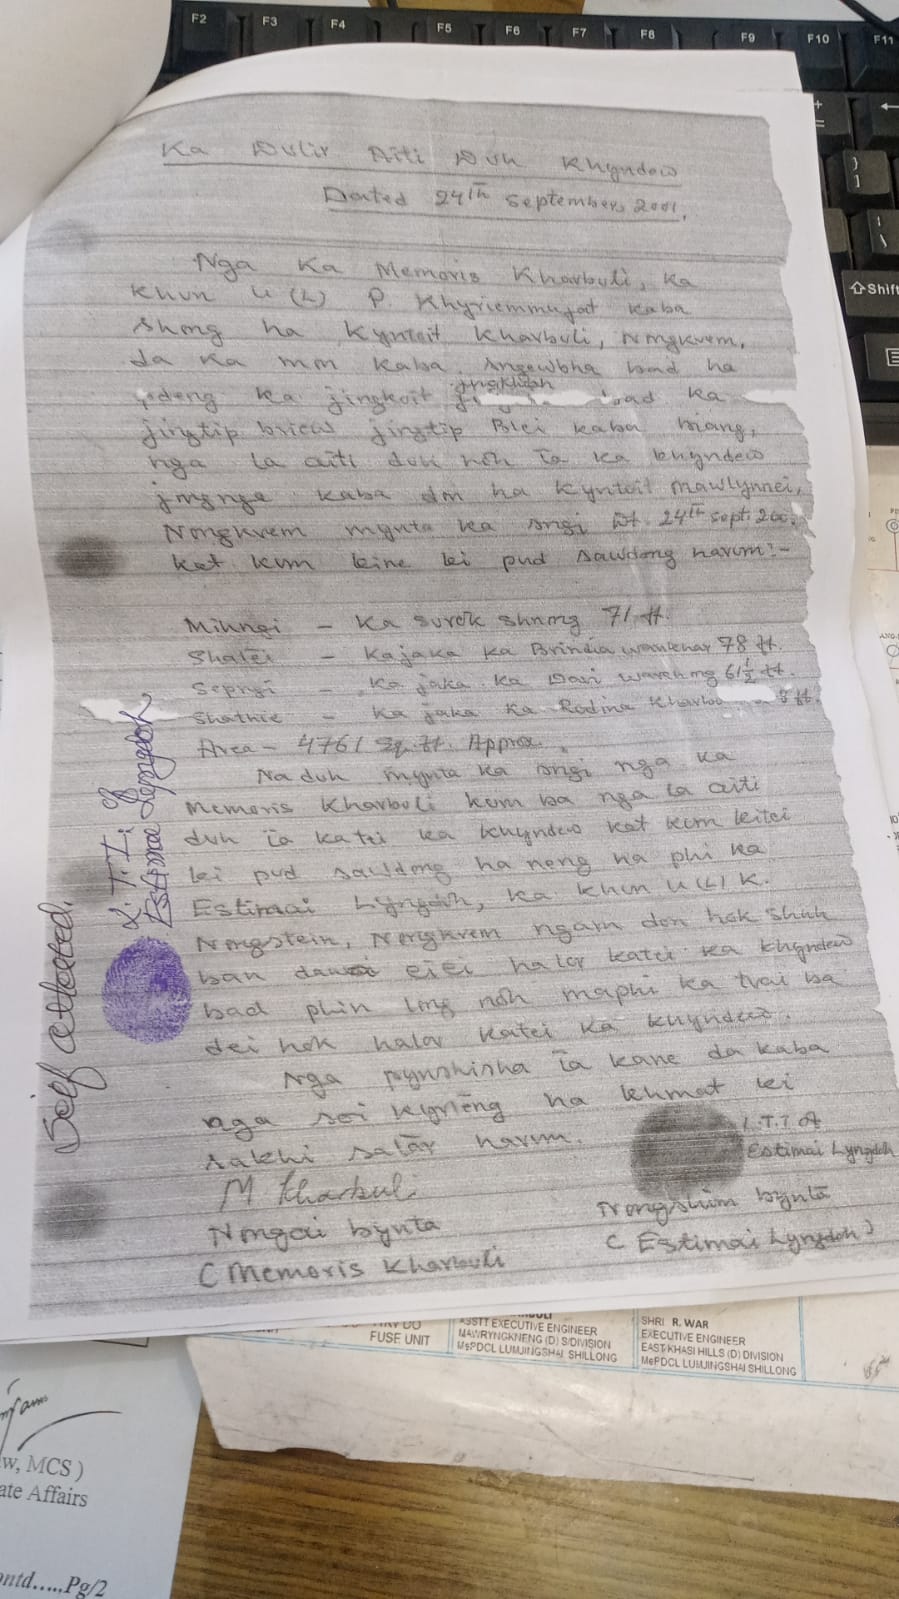 F2 F3 F4 F5 F6 F7 F8 F9 F10 F11
Shift
Ka Dulir Aiti Duh Khyndew
Dated 24th September, 2001.
Nga Ka Memoris Kharbuli, ka
khun u (L) P. Khyriemmujat kaba
shong ha Kyntoit Kharbuli, Nongkrem,
da ka mon kaba sngewbha bad ha
pdeng ka jingkoit jingkhiah bad ka
jingtip briew jingtip Blei kaba biang,
nga la aiti duh noh ïa ka khyndew
jingnga kaba don ha Kyntoit Mawlynnei,
Nongkrem mynta ka sngi 24th Sept.
kat kum kine ki pud sawdong harum:-
Mihngi - Ka surok shnong 71 ft.
Shatei - Ka jaka ka Brindia 78 ft.
Sepngi - Ka jaka ka 61½ ft.
Shathie - Ka jaka ka Rodina ft.
Area - 4761 Sq. ft. Approx.
Naduh mynta ka sngi nga ka
Memoris Kharbuli kum ba nga la aiti
duh ïa katei ka khyndew kat kum kitei
ki pud sawdong haneng ha phi ka
Estimai Lyngdoh, ka khun u (L) K.
Nongstein, Nongkrem ngam don hok shuh
ban dawa eiei halor katei ka khyndew
bad phin long noh maphi ka trai ba
dei hok halor katei ka khyndew.
Nga pynshisha ïa kane da kaba
nga soi kyrteng ha khmat ki
sakhi harum.
M Kharbuli
Nongai bynta
(Memoris Kharbuli
L.T.I of
Estimai Lyngdoh
Nongshim bynta
(Estimai Lyngdoh)
Self attested.
L.T.I. of
Estimai Lyngdoh
FUSE UNIT
ASSTT EXECUTIVE ENGINEER
MAWRYNGKNENG (D) S/DIVISION
MePDCL LUMJINGSHAI SHILLONG
SHRI R. WAR
EXECUTIVE ENGINEER
EAST KHASI HILLS (D) DIVISION
MePDCL LUMJINGSHAI SHILLONG
w, MCS )
ate Affairs
ontd.....Pg/2